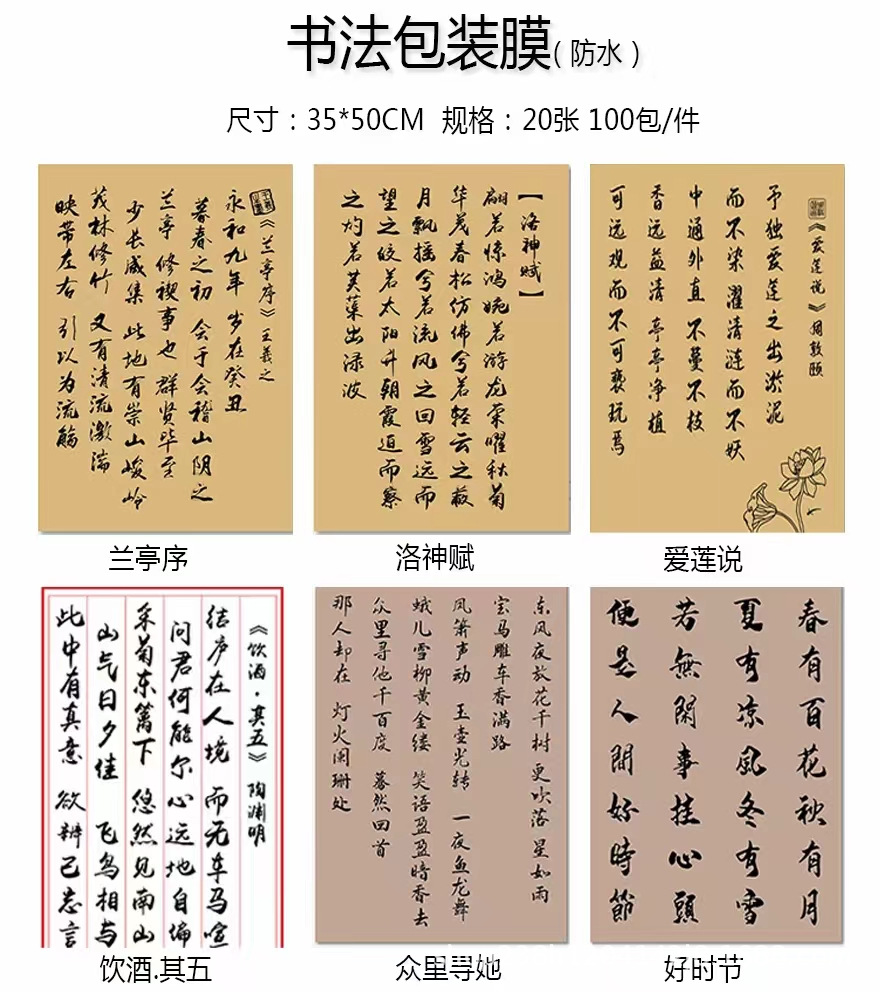 书法包装膜(防水)
尺寸：35*50CM 规格：20张 100包/件
《兰亭序》王羲之
永和九年 岁在癸丑
暮春之初 会于会稽山阴之
兰亭 修禊事也 群贤毕至
少长咸集 此地有崇山峻岭
茂林修竹 又有清流激湍
映带左右 引以为流觞
兰亭序
【洛神赋】
翩若惊鸿婉若游龙荣曜秋菊
华茂春松仿佛兮若轻云之蔽
月飘摇兮若流风之回雪远而
望之皎若太阳升朝霞迫而察
之灼若芙蕖出渌波
洛神赋
《爱莲说》周敦颐
予独爱莲之出淤泥
而不染濯清涟而不妖
中通外直 不蔓不枝
香远益清 亭亭净植
可远观而不可亵玩焉
爱莲说
《饮酒·其五》 陶渊明
结庐在人境 而无车马喧
问君何能尔 心远地自偏
采菊东篱下 悠然见南山
山气日夕佳 飞鸟相与
此中有真意 欲辨已忘言
饮酒.其五
东风夜放花千树 更吹落 星如雨
宝马雕车香满路
凤箫声动 玉壶光转 一夜鱼龙舞
蛾儿雪柳黄金缕 笑语盈盈暗香去
众里寻他千百度 蓦然回首
那人却在 灯火阑珊处
众里寻她
春有百花秋有月
夏有凉风冬有雪
若無閑事挂心頭
便是人間好時節
好时节